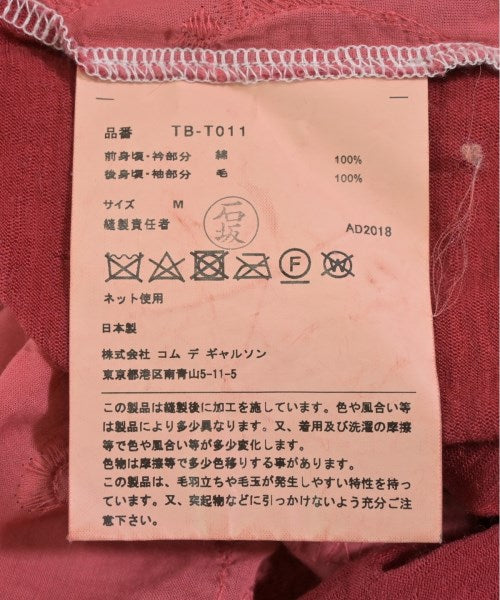 品番 TB-T011
前身頃・衿部分 綿 100%
後身頃・袖部分 毛 100%
サイズ M
縫製責任者 石坂 AD2018
F W
ネット使用
日本製
株式会社 コム デ ギャルソン
東京都港区南青山5-11-5
この製品は縫製後に加工を施しています。色や風合い等
は製品により多少異なります。又、着用及び洗濯の摩擦
等で色や風合い等が多少変化します。
色物は摩擦等で多少色移りする事があります。
この製品は、毛羽立ちや毛玉が発生しやすい特性を持っ
ています。又、突起物などに引っかけないよう充分ご注
意下さい。